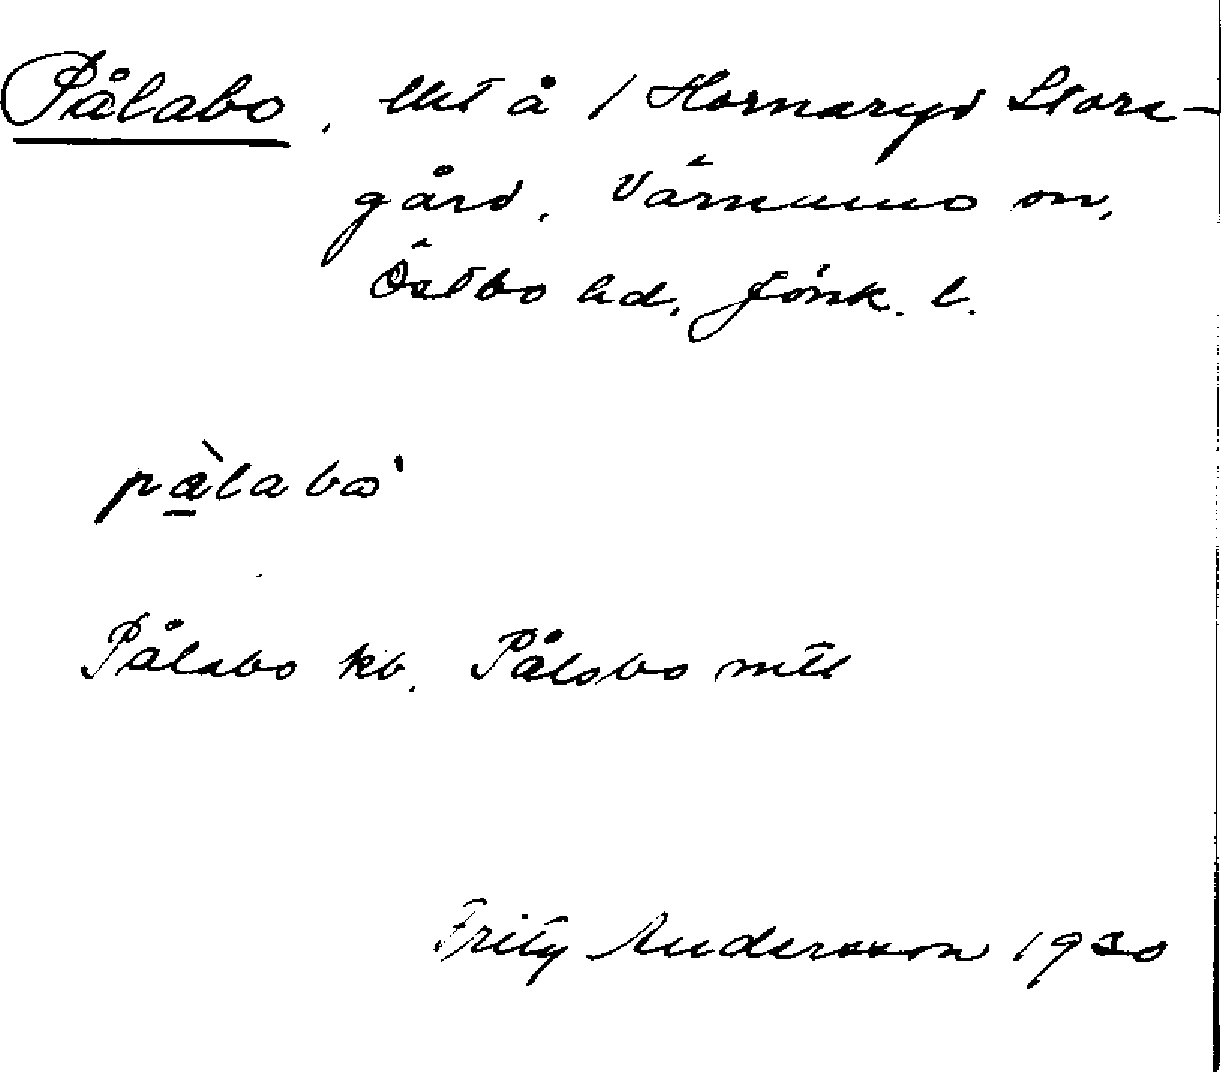 Pålabo. Ut å 1 Hornaryd Stora-
gård, Värnamo sn,
Östbo hd, Jönk. l.
pàlabo'
Pålabo kb. Pålsbo mtl
Fritz Andersson 1930